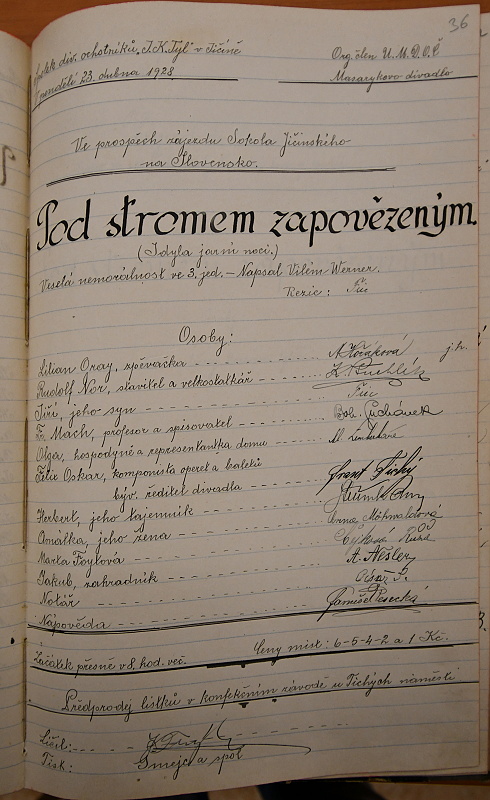 36
Spolek div. ochotníků "J.K. Tyl" v Jičíně
Org. člen Ú.M.D.O.Č
V pondělí 23. dubna 1928
Masarykovo divadlo
Ve prospěch zájezdu Sokola Jičínského
na Slovensko.
Pod stromem zapovězeným.
(Idyla jarní noci.)
Veselá nemorálnost ve 3. jed. – Napsal Vilém Werner.
Režie: Fric
Osoby:
Lilian Oray, zpěvačka - - - A. Kožáková j.h.
Rudolf Nor, stavitel a velkostatkář - - -
Jiří, jeho syn - - - Fric
Fr. Mach, profesor a spisovatel - - - Boh. Suchánek
Olga, hospodyně a representantka domu - - - M.
Felix Oskar, komponista operet a baletů
býv. ředitel divadla - - - Frant Tichý
Herbert, jeho tajemník - - -
Amálka, jeho žena - - - Anna Möhwaldová
Marta Foytová - - -
Jakub, zahradník - - - A. Nesler
Notář - - -
Nápověda - - - Pesecká
Začátek přesně v 8. hod. več. Ceny míst: 6-5-4-2 a 1 Kč.
Předprodej lístků v konfekčním závodě u Tichých náměstí
Líčil: - - -
Tisk: Smejc a spol